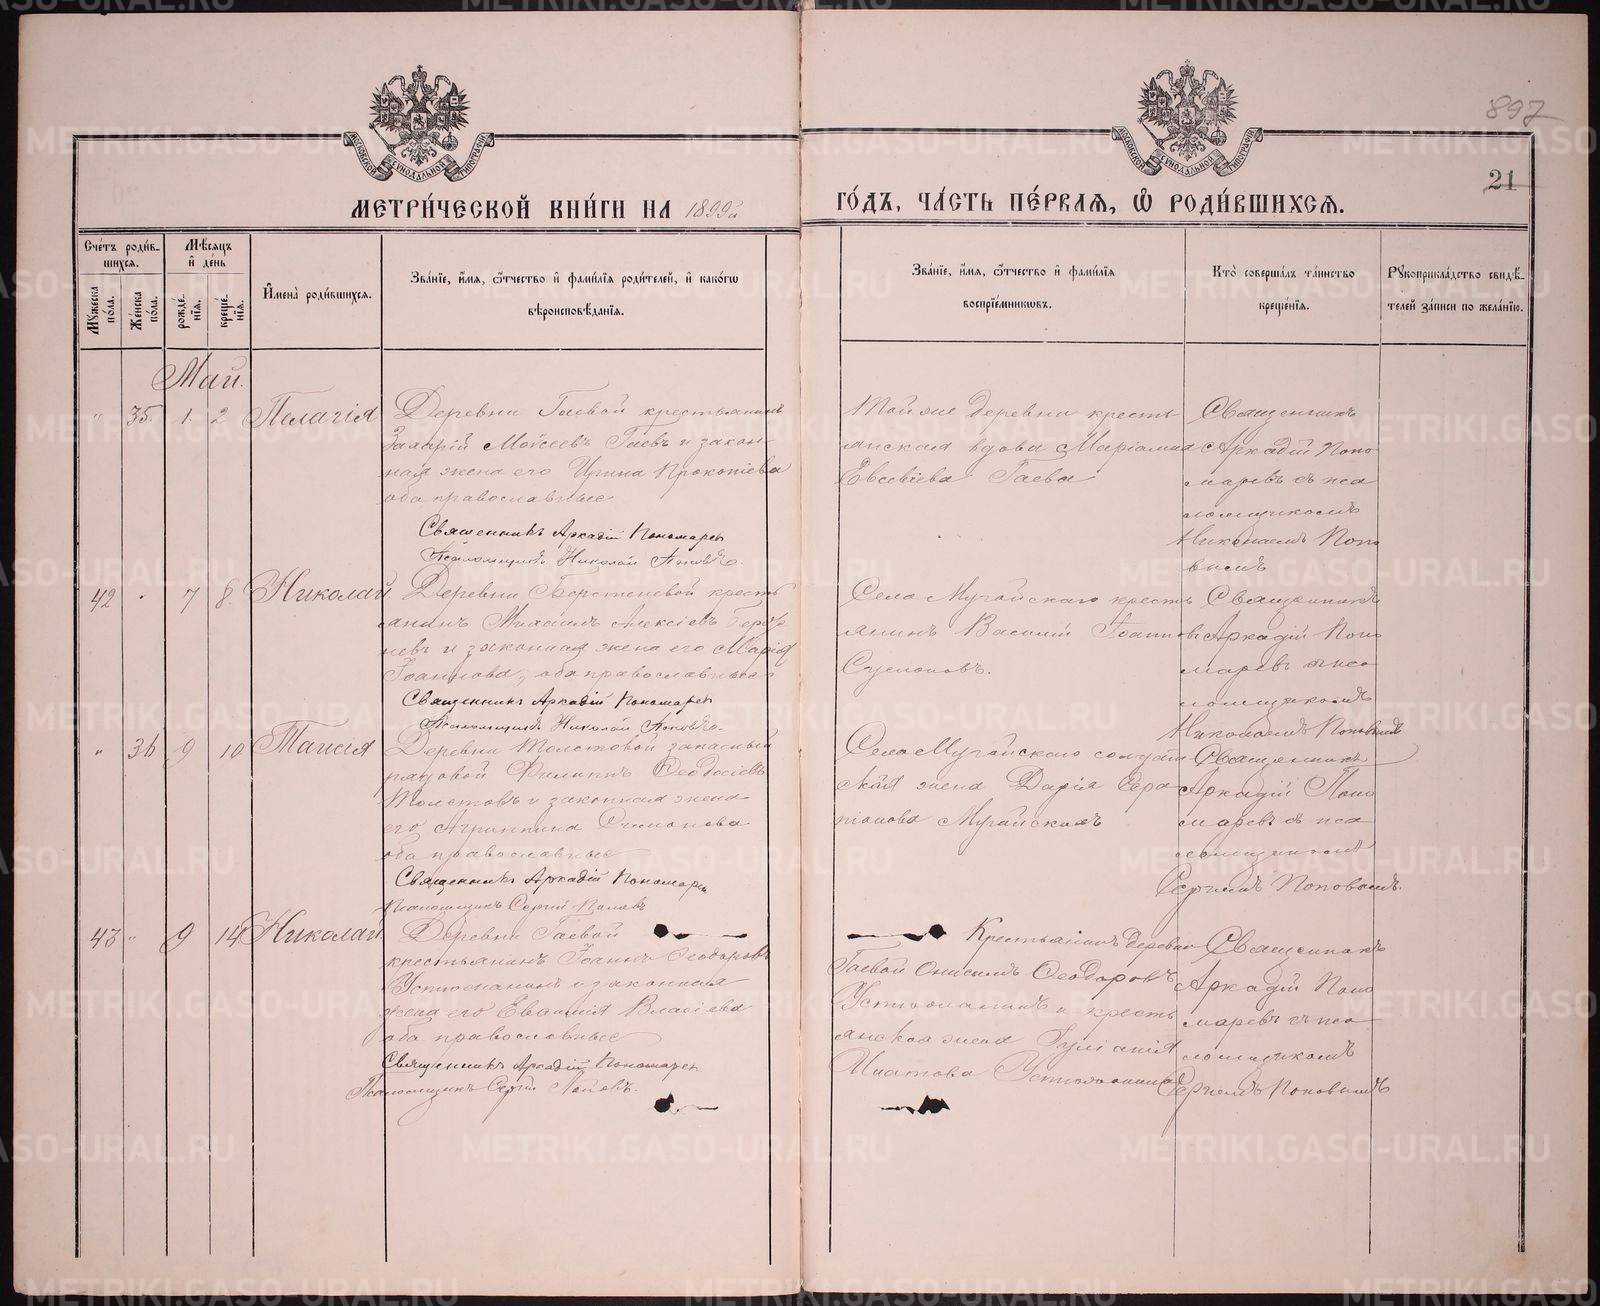 897
21
МОСКОВСКОЙ СѴНОДАЛЬНОЙ ТИПОГРАФІИ
МОСКОВСКОЙ СѴНОДАЛЬНОЙ ТИПОГРАФІИ
МЕТРИ́ЧЕСКОЙ КНИ́ГИ НА 1899й
ГО́ДЪ, ЧА́СТЬ ПЕ́РВАѦ, Ѡ҆ РОДИ́ВШИХСѦ.
Сче́тъ роди́в-
шихсѧ.
Мꙋ́жеска по́ла.
Же́нска по́ла.
Мѣ́сѧцъ
и҆ де́нь
рожде́нїѧ.
креще́нїѧ.
И҆мена̀ роди́вшихсѧ.
Зва́нїе, и҆́мѧ, ѻ҆́тчество и҆ фами́лїѧ роди́телей, и҆ како́гѡ
вѣроисповѣ́данїѧ.
Зва́нїе, и҆́мѧ, ѻ҆́тчество и҆ фами́лїѧ
воспрїе́мникѡвъ.
Кто̀ соверша́лъ та́инство
креще́нїѧ.
Рꙋкоприкла́дство свидѣ́-
телей за́писи по жела́нїю.
Май.
" 35. 1. 2 Пелагія
Деревни Гаевой крестьянинъ
Захарій Моѵсеевъ Гаевъ и закон-
ная жена его Ирина Прокопіева
оба православные
Священникъ Аркадій Пономаревъ
Псаломщикъ Николай Поповъ.
Той же деревни кресть
янская вдова Маріамна
Евсевіева Гаева
Священникъ
Аркадій Поно
маревъ съ пса
ломщикомъ
Николаемъ Попо
вымъ
42 " 7 8. Николай
Деревни кресть
янинъ Михаилъ Алексіевъ
невъ и законная жена его Марія
Іоаннова, оба православные
Священникъ Аркадій Пономаревъ
Псаломщикъ Николай Поповъ.
Села Мугайскаго кресть
янинъ Василій Іоанновъ
Сусловъ.
Священникъ
Аркадій Поно
маревъ съ пса
ломщикомъ
Николаемъ Поповымъ
" 36 9 10 Таисія
Деревни Толстовой запасный
рядовой Филиппъ Ѳеодосіевъ
Толстовъ и законная жена
его Агриппина
оба православные
Священникъ Аркадій Пономаревъ
Псаломщикъ Сергій Поповъ
Села Мугайскаго солдат
ская жена Дарія
Мугайскихъ
Священникъ
Аркадій Поно
маревъ съ пса
ломщикомъ
Сергіемъ Поповымъ.
43 " 9 14 Николай
Деревни Гаевой
крестьянинъ Іоаннъ Ѳеодоровъ
Устюжанинъ и законная
жена его Евѳимія Власіева
оба православные
Священникъ Аркадій Пономаревъ
Псаломщикъ Сергій Поповъ.
Крестьянинъ деревни
Гаевой Онисимъ Ѳеодоровъ
Устюжанинъ и кресть
янская жена Іуліанія
Игнатова Устюжанина
Священникъ
Аркадій Поно
маревъ съ пса
ломщикомъ
Сергіемъ Поповымъ
METRIKI.GASO-URAL.RU